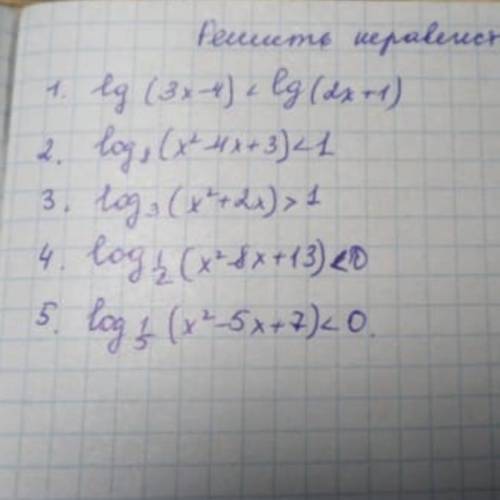 Решить неравенст
1. lg (3x-4) < lg (2x+1)
2. log₈ (x²-4x+3) < 1
3. log₃ (x²+2x) > 1
4. log 1/2 (x²-8x+13) < 0
5. log 1/5 (x²-5x+7) < 0.